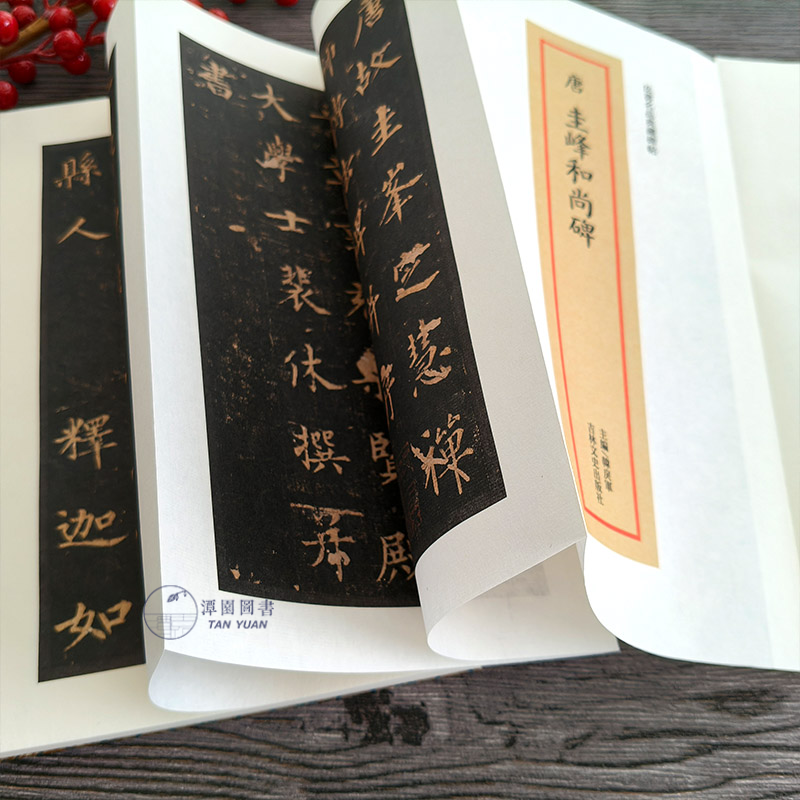 唐 圭峰和尚碑
主编
吉林文史出版社
唐故圭峯定慧禪
賢殿
大學士裴休撰并
書
縣人 釋迦如
潭園圖書
TAN YUAN